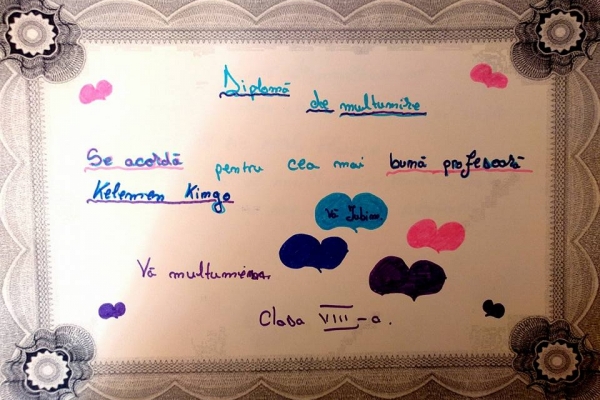 Diplomă
de multumire
Se acordă pentru cea mai bumă profesoară
Kelemen Kimga
Vă Iubim.
Vă multumim
Clasa VIII-a.